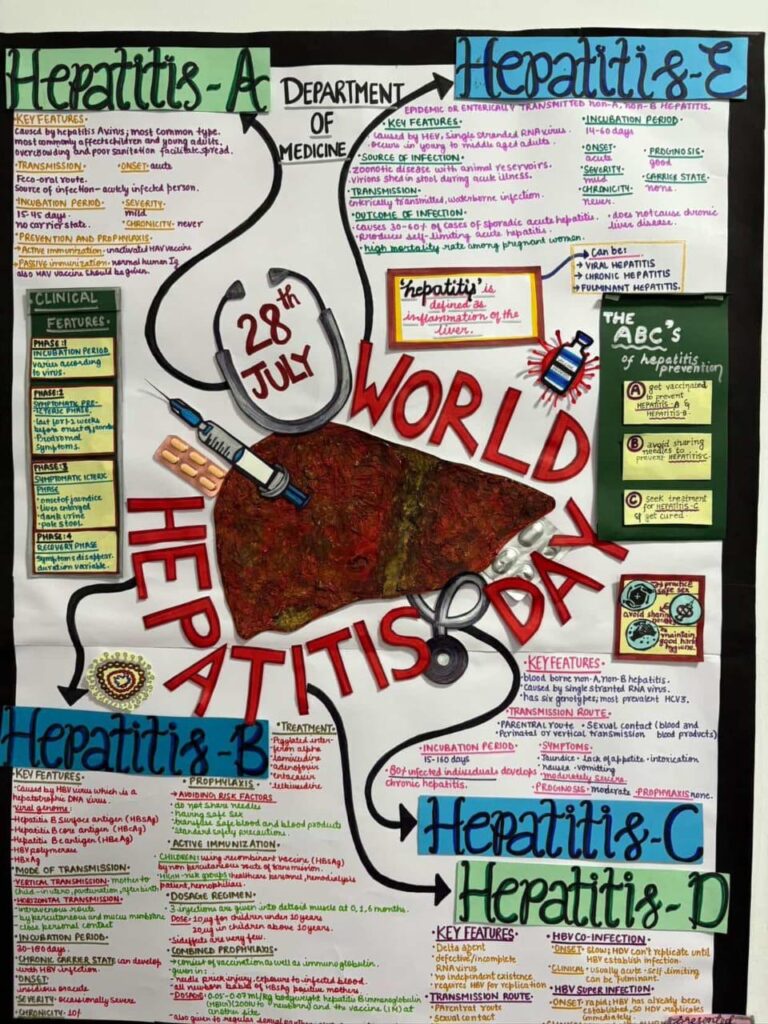 Hepatitis-A
KEY FEATURES-
Caused by hepatitis A virus, most common type.
most commonly affects children and young adults,
overcrowding and poor sanitation facilitate spread.
•TRANSMISSION•
•ONSET: acute
Feco-oral route.
Source of infection- acutely infected person.
•INCUBATION PERIOD•
•SEVERITY•
15-45 days.
mild
no carrier state.
•CHRONICITY: never
•PREVENTION AND PROPHYLAXIS•
→ACTIVE immunization-
HAV vaccine
→PASSIVE immunization- normal human Ig
also HAV vaccine should be given.
DEPARTMENT
OF
MEDICINE
Hepatitis-E
EPIDEMIC OR ENTERICALLY TRANSMITTED non-A, non-B HEPATITIS.
•KEY FEATURES•
Caused by HEV, single stranded RNA virus.
occurs in young to middle aged adults.
•SOURCE OF INFECTION•
zoonotic disease with animal reservoirs.
virions shed in stool during acute illness.
•TRANSMISSION•
enterically transmitted, waterborne infection.
•OUTCOME OF INFECTION•
•causes 30-60% of cases of sporadic acute hepatitis.
•produces self-limiting acute hepatitis.
•high mortality rate among pregnant women.
•INCUBATION PERIOD•
14-60 days
•ONSET:
acute
•PROGNOSIS•
good
•SEVERITY:
mild
•CARRIER STATE•
none.
•CHRONICITY:
never.
•does not cause chronic
liver disease.
'hepatitis' is
defined as
inflammation of the
liver.
Can be:
→ VIRAL HEPATITIS
→ CHRONIC HEPATITIS
→FULMINANT HEPATITIS.
28th
JULY
CLINICAL
FEATURES•
PHASE:1
INCUBATION PERIOD
varies according
to virus.
PHASE:2
SYMPTOMATIC PRE-
ICTERIC PHASE.
before onset of jaundice
Prodromal
symptoms.
PHASE:3
SYMPTOMATIC ICTERIC
PHASE
•onset of jaundice
•liver enlarged
•dark urine
•pale stool.
PHASE:4
RECOVERY PHASE
Symptoms disappear.
duration variable.
THE
ABC's
of hepatitis
prevention
A get vaccinated
to prevent
HEPATITIS-A &
HEPATITIS-B.
B avoid sharing
needles to
prevent HEPATITIS-C
C seek treatment
for HEPATITIS-C
& get cured.
WORLD
HEPATITIS DAY
practice
safe sex
avoid sharing
maintain
good
hygiene.
KEY FEATURES•
•blood borne non-A, non-B hepatitis.
•Caused by single stranted RNA virus.
•has six genotypes; most prevalent HCV3.
•TRANSMISSION ROUTE•
•PARENTRAL route
•Sexual contact (blood and
Perinatal or vertical transmission
blood products)
•INCUBATION PERIOD•
15-160 days
•80% infected individuals develops
chronic hepatitis.
•SYMPTOMS•
•Jaundice •lack of appetite •intoxication
•nausea •vomitting
moderately severe.
•PROGNOSIS•moderate
•PROPHYAXIS none.
Hepatitis-C
Hepatitis-B
KEY FEATURES
•Caused by HBV virus which is a
hepatotropic DNA virus.
•viral genome:
•Hepatitis B surface antigen (HBsAg)
•Hepatitis B core antigen (HBcAg)
•Hepatitis B e antigen (HBeAg)
•HBV polymerase
•HBxAg
•MODE OF TRANSMISSION•
•VERTICAL TRANSMISSION: mother to
child-in utero, parturation, after birth.
•HORIZONTAL TRANSMISSION•
•intravenous route
•by percutaneous and mucus membrane
•close personal contact
•INCUBATION PERIOD•
30-180 days.
•CHRONIC CARRIER STATE can develop
with HBV infection.
•ONSET•
insidious or acute
•SEVERITY: occasionally severe
•CHRONICITY:
•TREATMENT•
•Pegylated inter-
feron alpha
•lamivudine
•adenofovir
•entacavir
•telbivudine
•PROPHYLAXIS
→AVOIDING RISK FACTORS
•do not share needles
•having safe sex
•transfuse safe blood and blood products
•standard safety precautions.
•ACTIVE IMMUNIZATION•
•CHILDREN: using recombinant vaccine (HBsAg)
by non percutaneous route of transmission.
•HIGH-risk groups: healthcare personnel, hemodialysis
patient, hemophiliacs.
•DOSAGE REGIMEN•
•3 injections are given into deltoid muscle at 0,1,6 months.
•Dose: 10µg for children under 10years
20µg in children above 10years.
•Sideffects are very few.
•COMBINED PROPHYLAXIS•
→Consist of vaccination as well as immunoglobulin.
•given in:
•needle prick injury, exposure to infected blood.
•all newborn babies of HBsAg positive mothers.
•DOSAGE: 0.05-0.07 ml/kg bodyweight hepatitis B immunoglobulin
newborn) and the vaccine (IM) at
another site
•also given to regular sexual
Hepatitis-D
KEY FEATURES
•Delta agent
•defective/incomplete
RNA virus
•no independent existence
•requires HBV for replication
•TRANSMISSION ROUTE•
•Parentral route
•Sexual contact
•HBV CO-INFECTION•
•ONSET: slow; HDV can't replicate until
HBV establish infection.
•CLINICAL: usually acute-self limiting
can be fulminant.
•HBV SUPER INFECTION•
•ONSET: rapid; HBV has already been
established, SO HDV replicates
immediately.